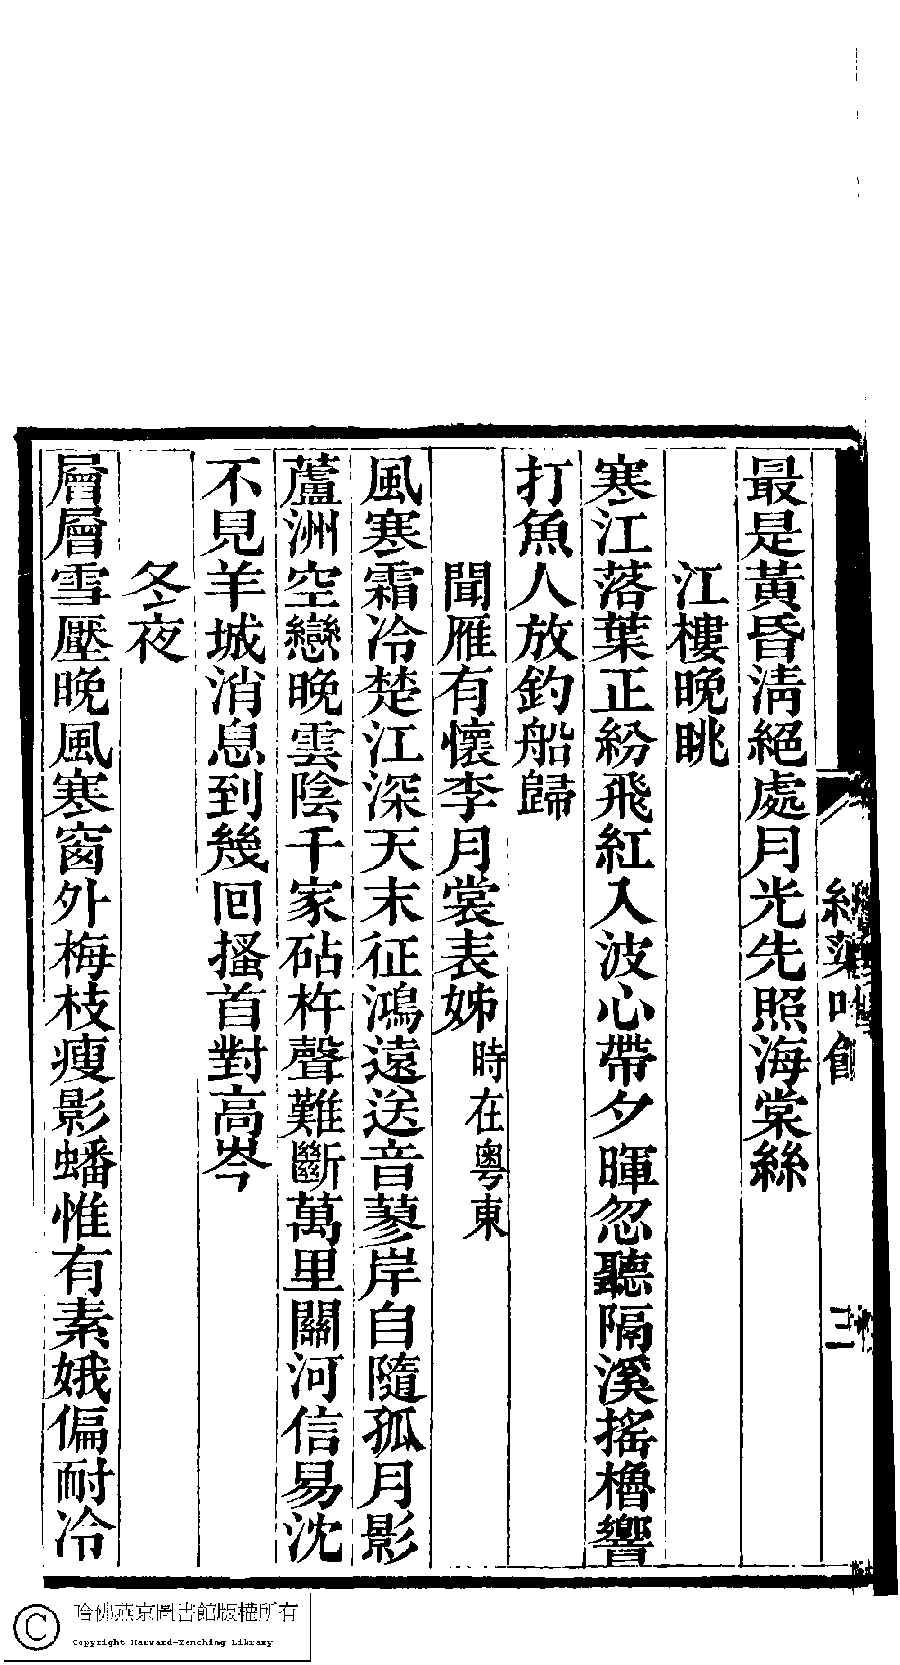 最是黃昏淸絕處月光先照海棠絲
江樓晚眺
寒江落葉正紛飛紅入波心帶夕暉忽聽隔溪搖櫓響
打魚人放釣船歸
聞雁有懷李月裳表姊時在粵東
風寒霜冷楚江深天末征鴻遠送音蓼岸自隨孤月影
蘆洲空戀晚雲陰千家砧杵聲難斷萬里關河信易沈
不見羊城消息到幾回搔首對高岑
冬夜
層層雪壓晚風寒窗外梅枝瘦影蟠惟有素娥偏耐冷
哈佛燕京圖書館版權所有
Copyright Harvard-Yenching Library